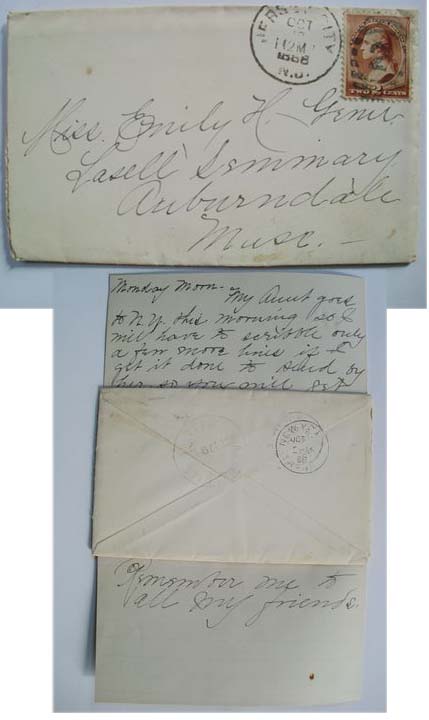 JERSEY CITY
OCT
12M
N.J.
TWO CENTS
Miss. Emily H.
Lasell Seminary
Auburndale
Mass.
Monday Morn-
My Aunt goes
to N.Y. this morning so I
will have to scribble only
a few more lines if I
get it done to send by
her so you will get
NEW YORK
OCT
88
Remember me to
all my friends.